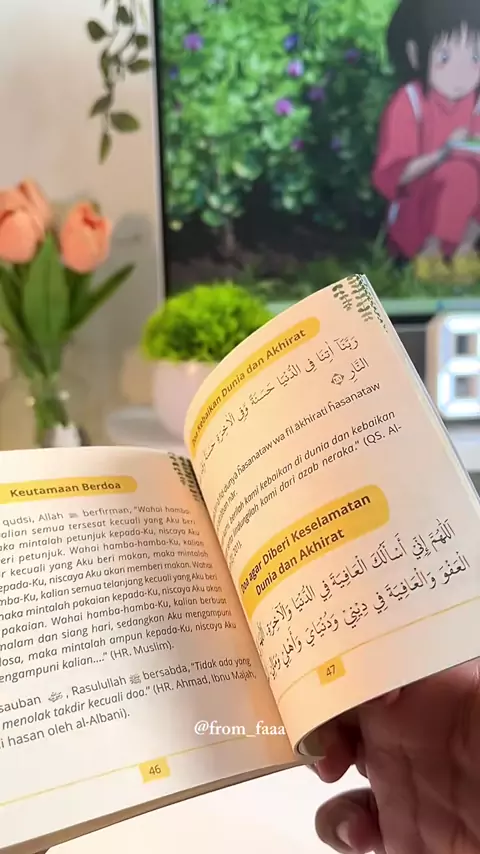 Keutamaan Berdoa
qudsi, Allah ﷻ berfirman, "Wahai hamba-
kalian semua tersesat kecuali yang Aku beri
maka mintalah petunjuk kepada-Ku, niscaya Aku
beri petunjuk. Wahai hamba-hamba-Ku, kalian
kecuali yang Aku beri makan, maka mintalah
kepada-Ku, niscaya Aku akan memberi makan. Wahai
hamba-Ku, kalian semua telanjang kecuali yang Aku beri
maka mintalah pakaian kepada-Ku, niscaya Aku akan
pakaian. Wahai hamba-hamba-Ku, kalian berbuat
malam dan siang hari, sedangkan Aku mengampuni
dosa, maka mintalah ampun kepada-Ku, niscaya Aku
mengampuni kalian...." (HR. Muslim).
sauban ﷺ, Rasulullah ﷺ bersabda, "Tidak ada yang
menolak takdir kecuali doa." (HR. Ahmad, Ibnu Majah,
hasan oleh al-Albani).
46
Doa Kebaikan Dunia dan Akhirat
رَبَّنَا آتِنَا فِي الدُّنْيَا حَسَنَةً وَفِي الْآخِرَةِ حَسَنَةً
النَّارِ
fid dunya hasanataw wa fil akhirati hasanataw
nar.
berilah kami kebaikan di dunia dan kebaikan
lindungilah kami dari azab neraka." (QS. Al-
201).
Doa agar Diberi Keselamatan
Dunia dan Akhirat
اَللّٰهُمَّ إِنِّي أَسْأَلُكَ الْعَافِيَةَ فِي الدُّنْيَا وَالْآخِرَةِ
الْعَفْوَ وَالْعَافِيَةَ فِي دِيْنِيْ وَدُنْيَايَ وَأَهْلِيْ وَمَالِيْ
47
@from_faaa